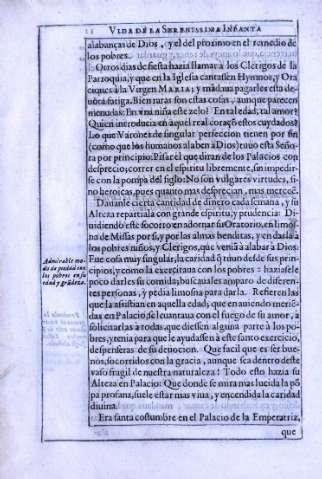 VIDA DE LA SERENISSIMA INFANTA
alabanças de Dios, y el del proximo en el remedio de
los pobres.
Otros dias de fiesta hazia llamar à los Clerigos de la
Parroquia, y que en la Iglesia cantassen Hymnos, y Ora
ciones à la Virgen MARIA; y mãdaua pagarles esta de-
uota fatiga. Bien raras son estas cosas, aunque parecen
menudas: En vna niña este zelo? En tal edad, tal amor?
Quien introducia en aquel real coraçõ estos cuydados?
Lo que Varones de singular perfeccion tienen por fin
(como que los humanos alaben à Dios) tuuo esta Seño-
ra por principio: Pisar el que diran de los Palacios con
desprecio; correr en el espiritu libremente, sin impedir-
se con la pompa del siglo: No son vulgares virtudes, si-
no heroicas, pues quanto mas desprecian, mas merecẽ.
Dauanle cierta cantidad de dinero cada semana, y su
Alteza repartiala con grande espiritu, y prudencia: Di-
uidiendo este socorro en adornar su Oratorio, en limos-
na de Missas por si, y por las almas benditas, y en darla à
los pobres niños, y Clerigos, que veniã à alabar à Dios.
Fue cosa muy singular, la caridad q̃ tuuo desde sus prin-
cipios, y como la exercitaua con los pobres: haziasele
poco darles su comida; buscauales amparo de diferen-
tes personas, y pedia limosna para darla. Refieren las
que la assistian en aquella edad; que en auiendo merie-
das en Palacio, se leuantaua con el fuego de su amor, à
solicitarlas à todas, que diessen alguna parte à los po-
bres, y tenia para que le ayudassen à este santo exercicio,
despenseras de su deuocion. Que facil que es ser bue-
nos, socorridos con la gracia, aunque sea dentro deste
vaso fragil de nuestra naturaleza! Todo esto hazia su
Alteza en Palacio: Que donde se mira mas lucida la põ
pa profana, suele estar mas viua, y encendida la caridad
diuina.
Era santa costumbre en el Palacio de la Emperatriz,
que
Admirable mo-
do de piedad con
los pobres en su
edad y grãdeza.